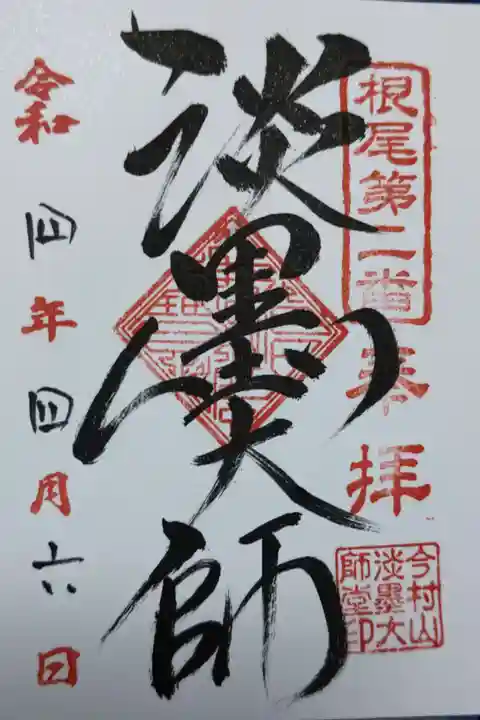 根尾第二番
奉拝
淡墨大師
今村山
淡墨大
師堂印
令和四年四月六日